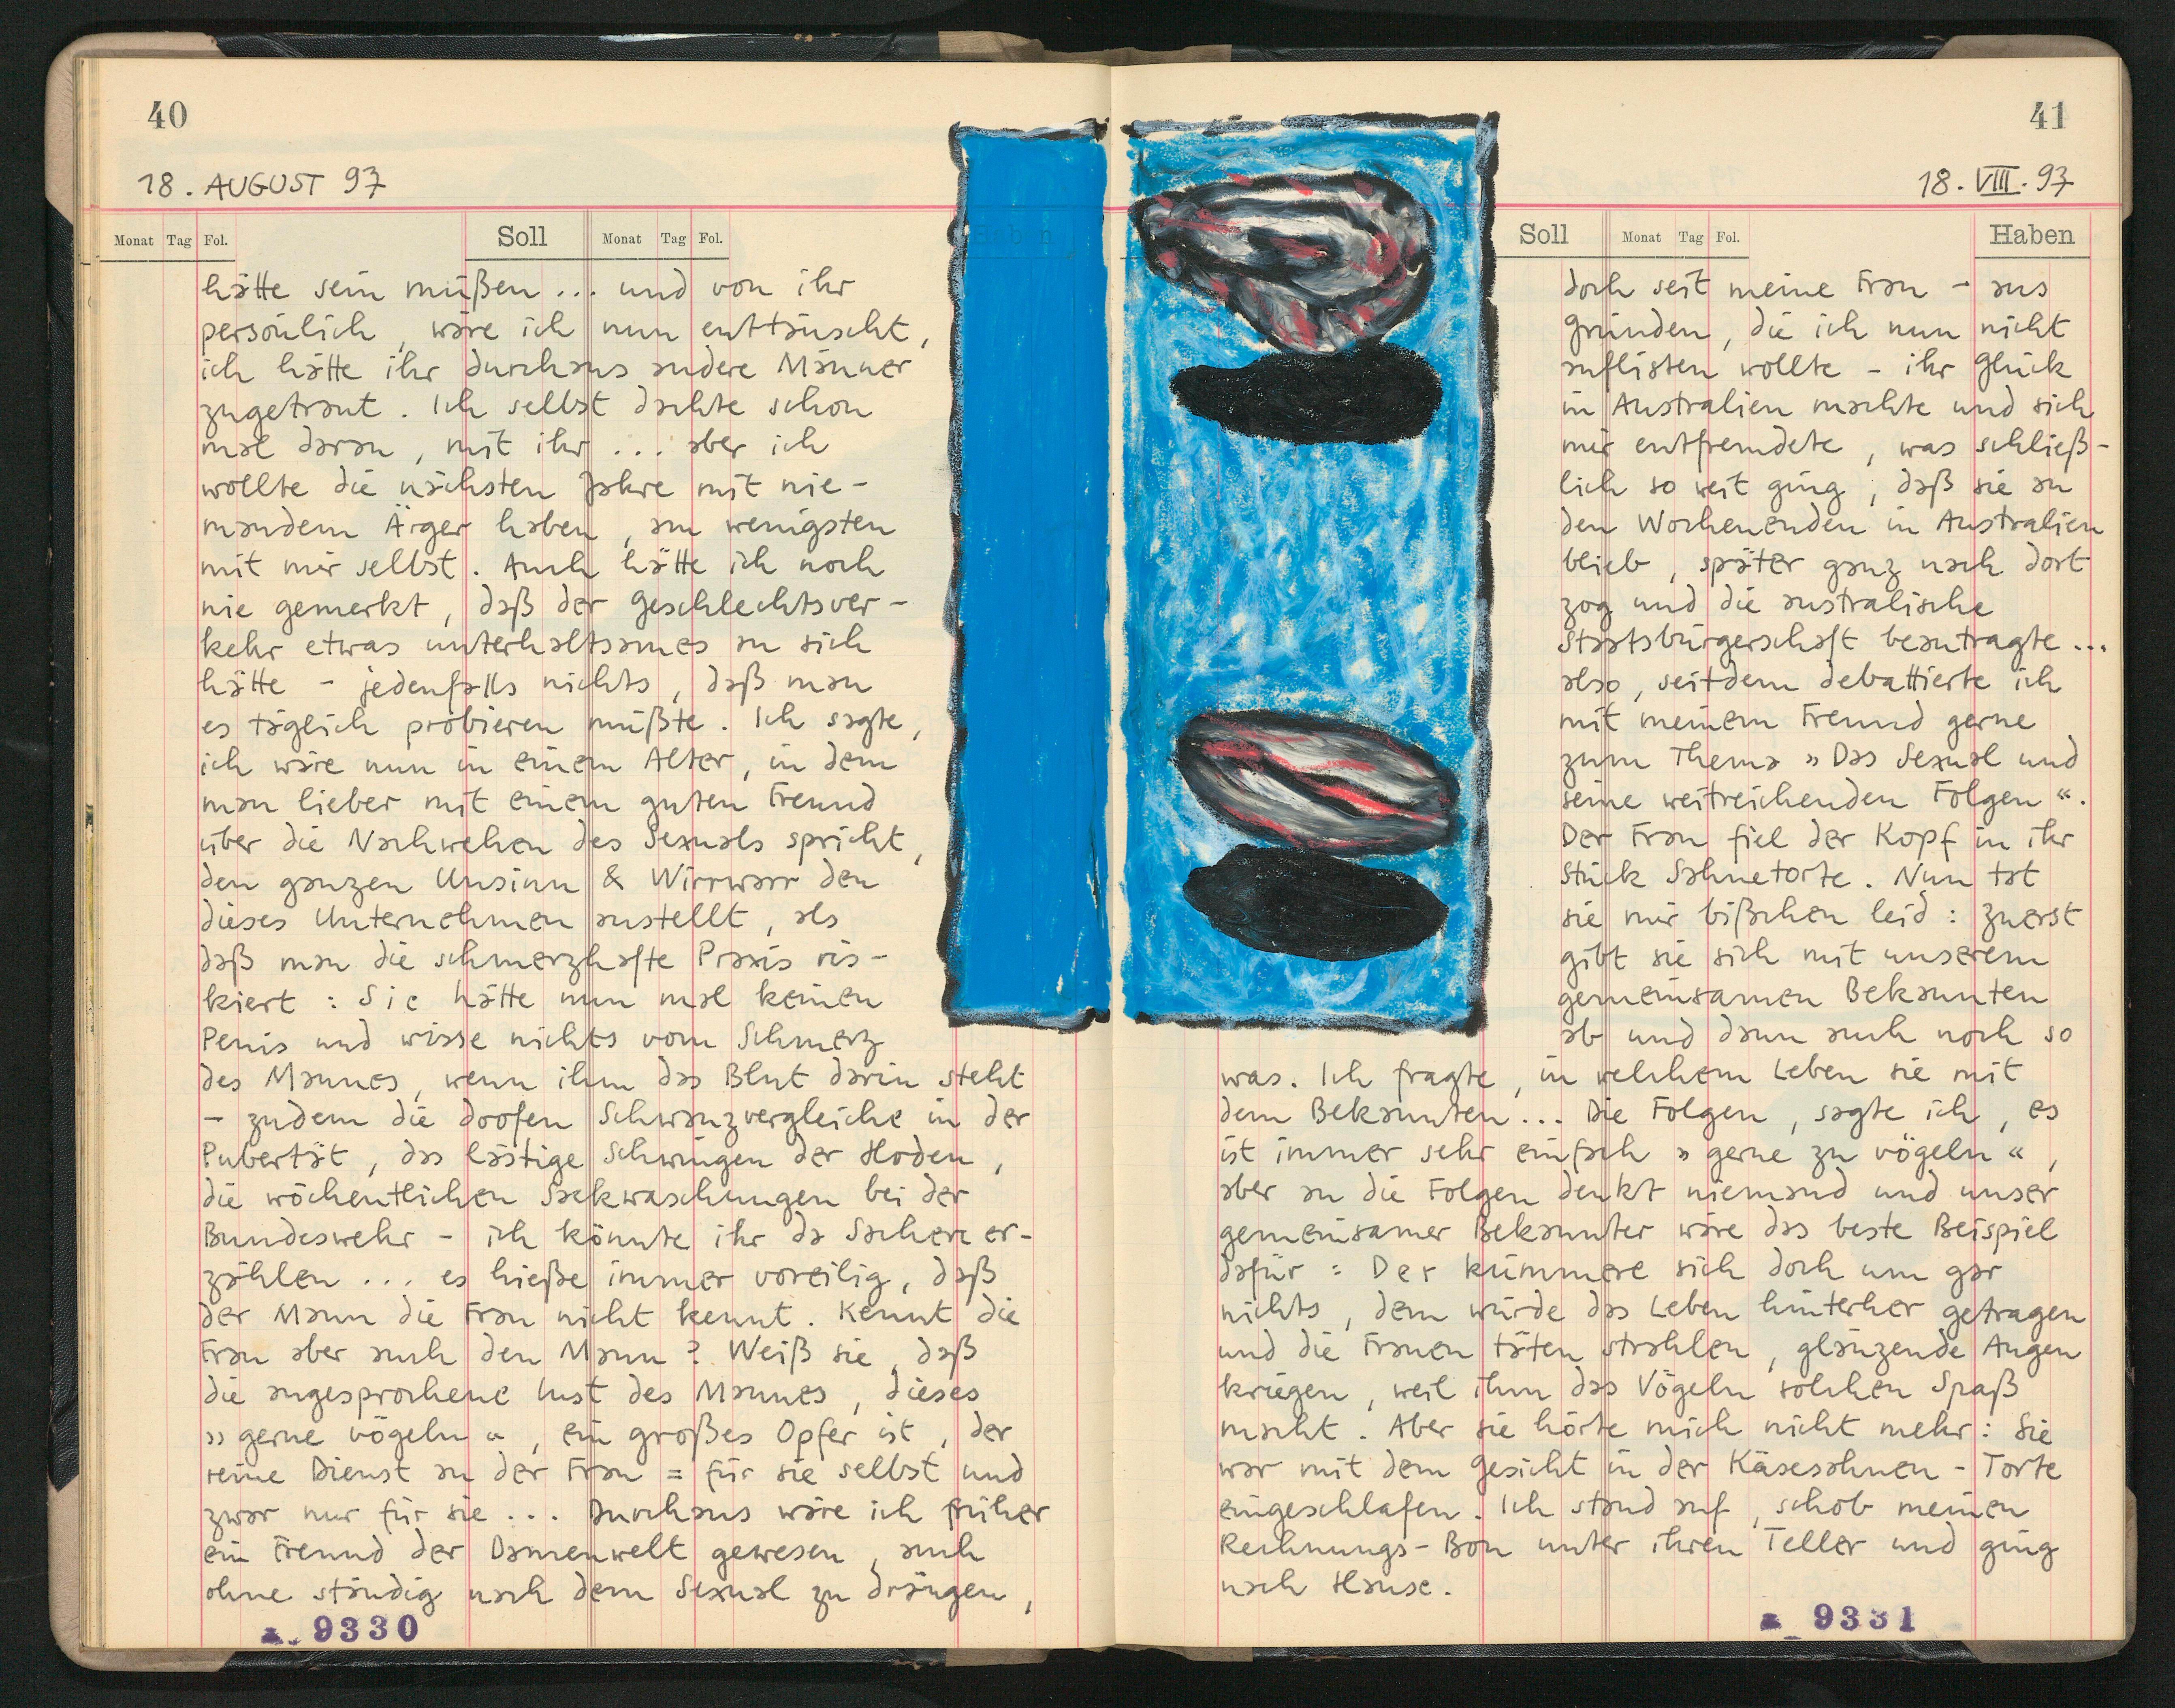 40
18. AUGUST 97
Monat Tag Fol. Soll Monat Tag Fol.
hätte sein müßen ... und von ihr
persönlich, wäre ich nun enttäuscht,
ich hätte ihr durchaus andere Männer
zugetraut. Ich selbst dachte schon
mal daran, mit ihr ... aber ich
wollte die nächsten Jahre mit nie-
mandem Ärger haben, am wenigsten
mit mir selbst. Auch hätte ich noch
nie gemerkt, daß der Geschlechtsver-
kehr etwas unterhaltsames an sich
hätte - jedenfalls nichts, daß man
es täglich probieren müßte. Ich sagte,
ich wäre nun in einem Alter, in dem
man lieber mit einem guten Freund
über die Nachwehen des Sexuals spricht,
den ganzen Unsinn & Wirrwarr den
dieses Unternehmen anstellt, als
daß man die schmerzhafte Praxis ris-
kiert : Sie hätte nun mal keinen
Penis und wisse nichts vom Schmerz
des Mannes, wenn ihm das Blut darin steht
- zudem die doofen Schwanzvergleiche in der
Pubertät, das lästige Schwingen der Hoden,
die wöchentlichen Sackwaschungen bei der
Bundeswehr - ich könnte ihr da Sachen er-
zählen ... es hieße immer voreilig, daß
der Mann die Frau nicht kennt. Kennt die
Frau aber auch den Mann? Weiß sie, daß
die angesprochene Lust des Mannes, dieses
»gerne vögeln«, ein großes Opfer ist, der
reine Dienst an der Frau = für sie selbst und
zwar nur für sie ... Durchaus wäre ich früher
ein Freund der Damenwelt gewesen, auch
ohne ständig nach dem Sexual zu drängen,
9330
41
18. VIII. 97
Soll Monat Tag Fol. Haben
doch seit meine Frau - aus
Gründen, die ich nun nicht
auflisten wollte - ihr Glück
in Australien machte und sich
mir entfremdete, was schließ-
lich so weit ging, daß sie an
den Wochenenden in Australien
blieb, später ganz nach dort
zog und die australische
Staatsbürgerschaft beantragte ...
also, seitdem debattierte ich
mit meinem Freund gerne
zum Thema »Das Sexual und
seine weitreichenden Folgen«.
Der Frau fiel der Kopf in ihr
Stück Sahnetorte. Nun tat
sie mir bißchen leid : zuerst
gibt sie sich mit unserem
gemeinsamen Bekannten
ab und dann auch noch so
was. Ich fragte, in welchem Leben sie mit
dem Bekannten ... Die Folgen, sagte ich, es
ist immer sehr einfach »gerne zu vögeln«,
aber an die Folgen denkt niemand und unser
gemeinsamer Bekannter wäre das beste Beispiel
dafür : Der kümmere sich doch um gar
nichts, dem würde das Leben hinterher getragen
und die Frauen täten strahlen, glänzende Augen
kriegen, weil ihm das Vögeln solchen Spaß
macht. Aber sie hörte mich nicht mehr : Sie
war mit dem Gesicht in der Käsesahnen-Torte
eingeschlafen. Ich stand auf, schob meinen
Rechnungs-Bon unter ihren Teller und ging
nach Hause.
9331